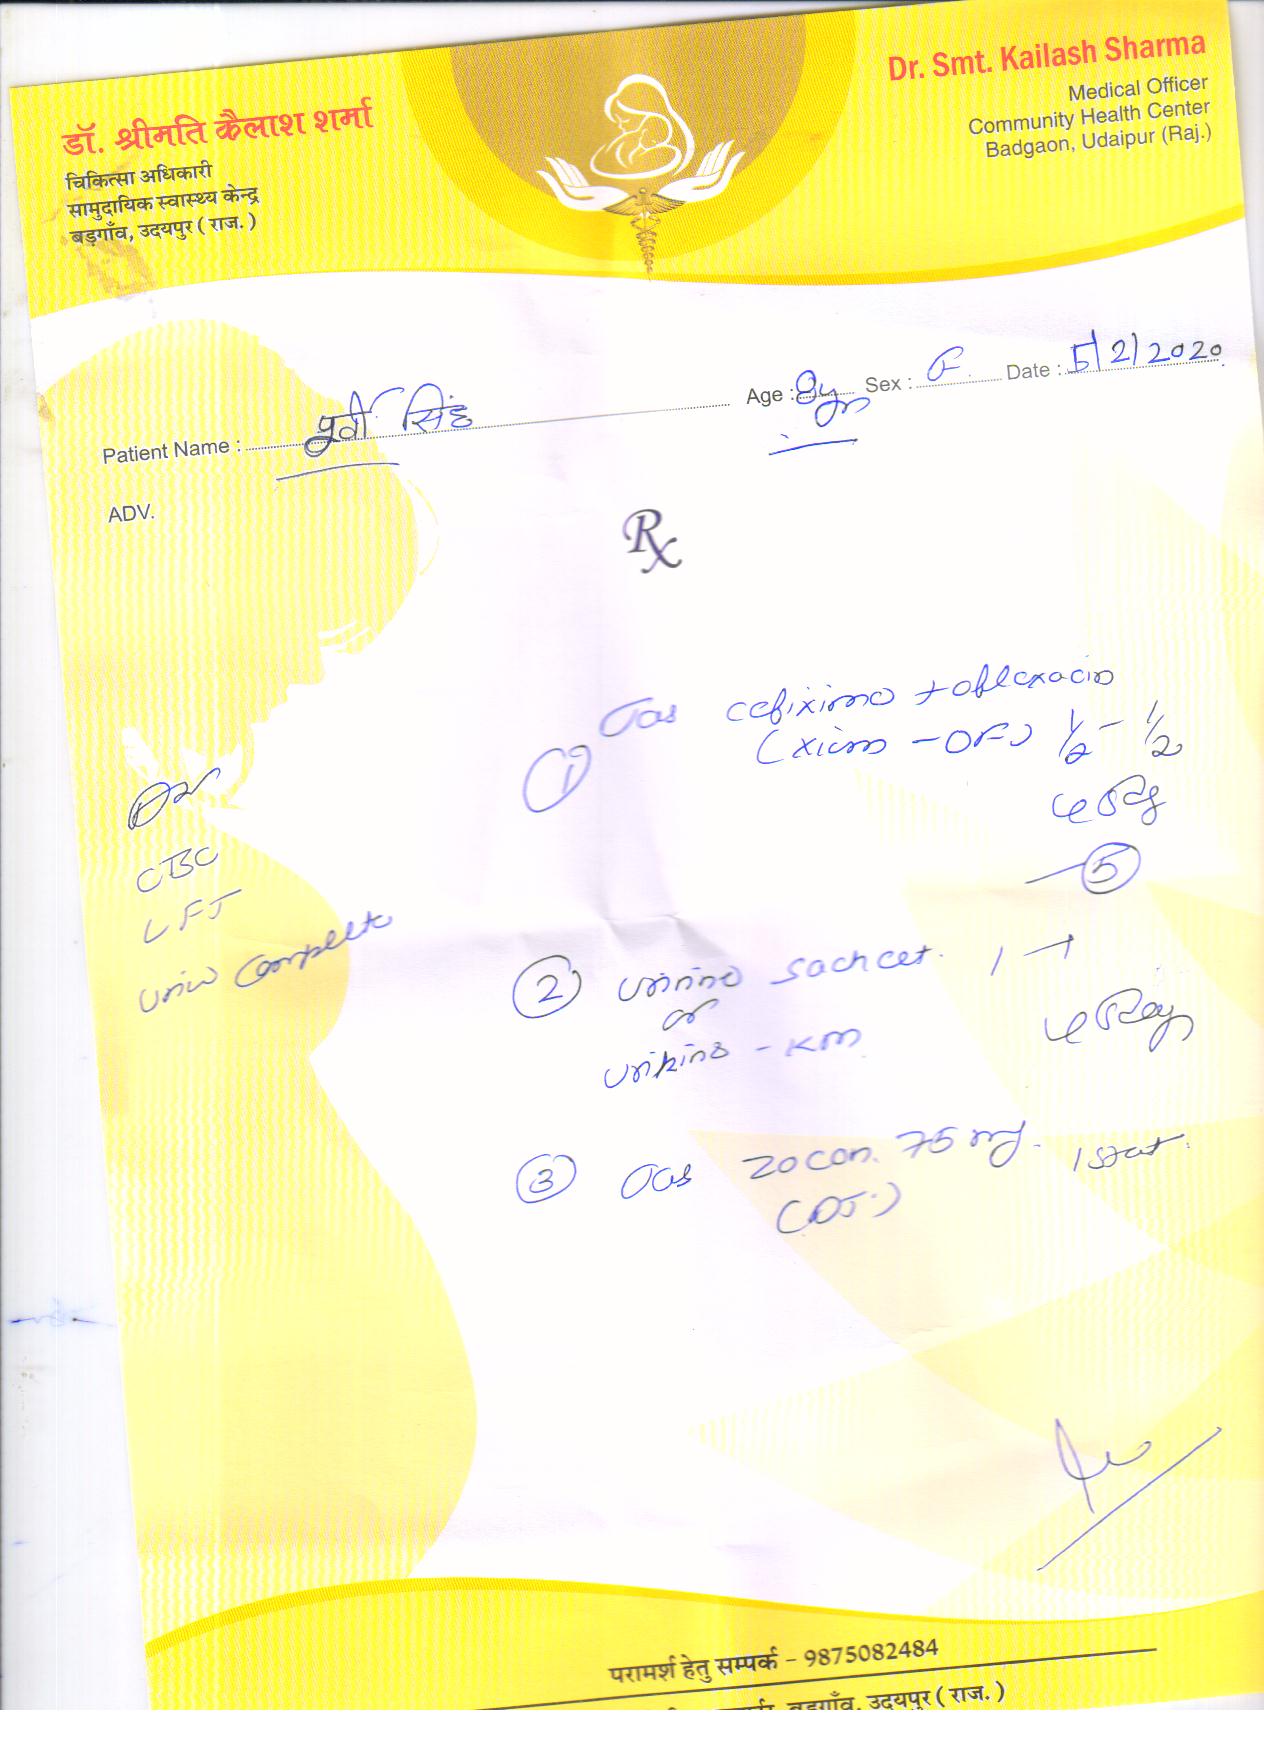 डॉ. श्रीमति कैलाश शर्मा
चिकित्सा अधिकारी
सामुदायिक स्वास्थ्य केन्द्र
बड़गाँव, उदयपुर ( राज. )
Dr. Smt. Kailash Sharma
Medical Officer
Community Health Center
Badgaon, Udaipur (Raj.)
Patient Name : पूर्वी सिंह Age : 8yrs Sex : F Date : 5/2/2020
ADV.
Rx
① Tab cefixime + ofloxacin
(xicom - OF) 1/2 - 1/2
- ⑤
CBC
LFT
urine complete
② sachet. 1 - 1
or
③ Tab zocon. 75 mg. 1 stat.
(DT.)
परामर्श हेतु सम्पर्क - 9875082484
बड़गाँव, उदयपुर ( राज. )